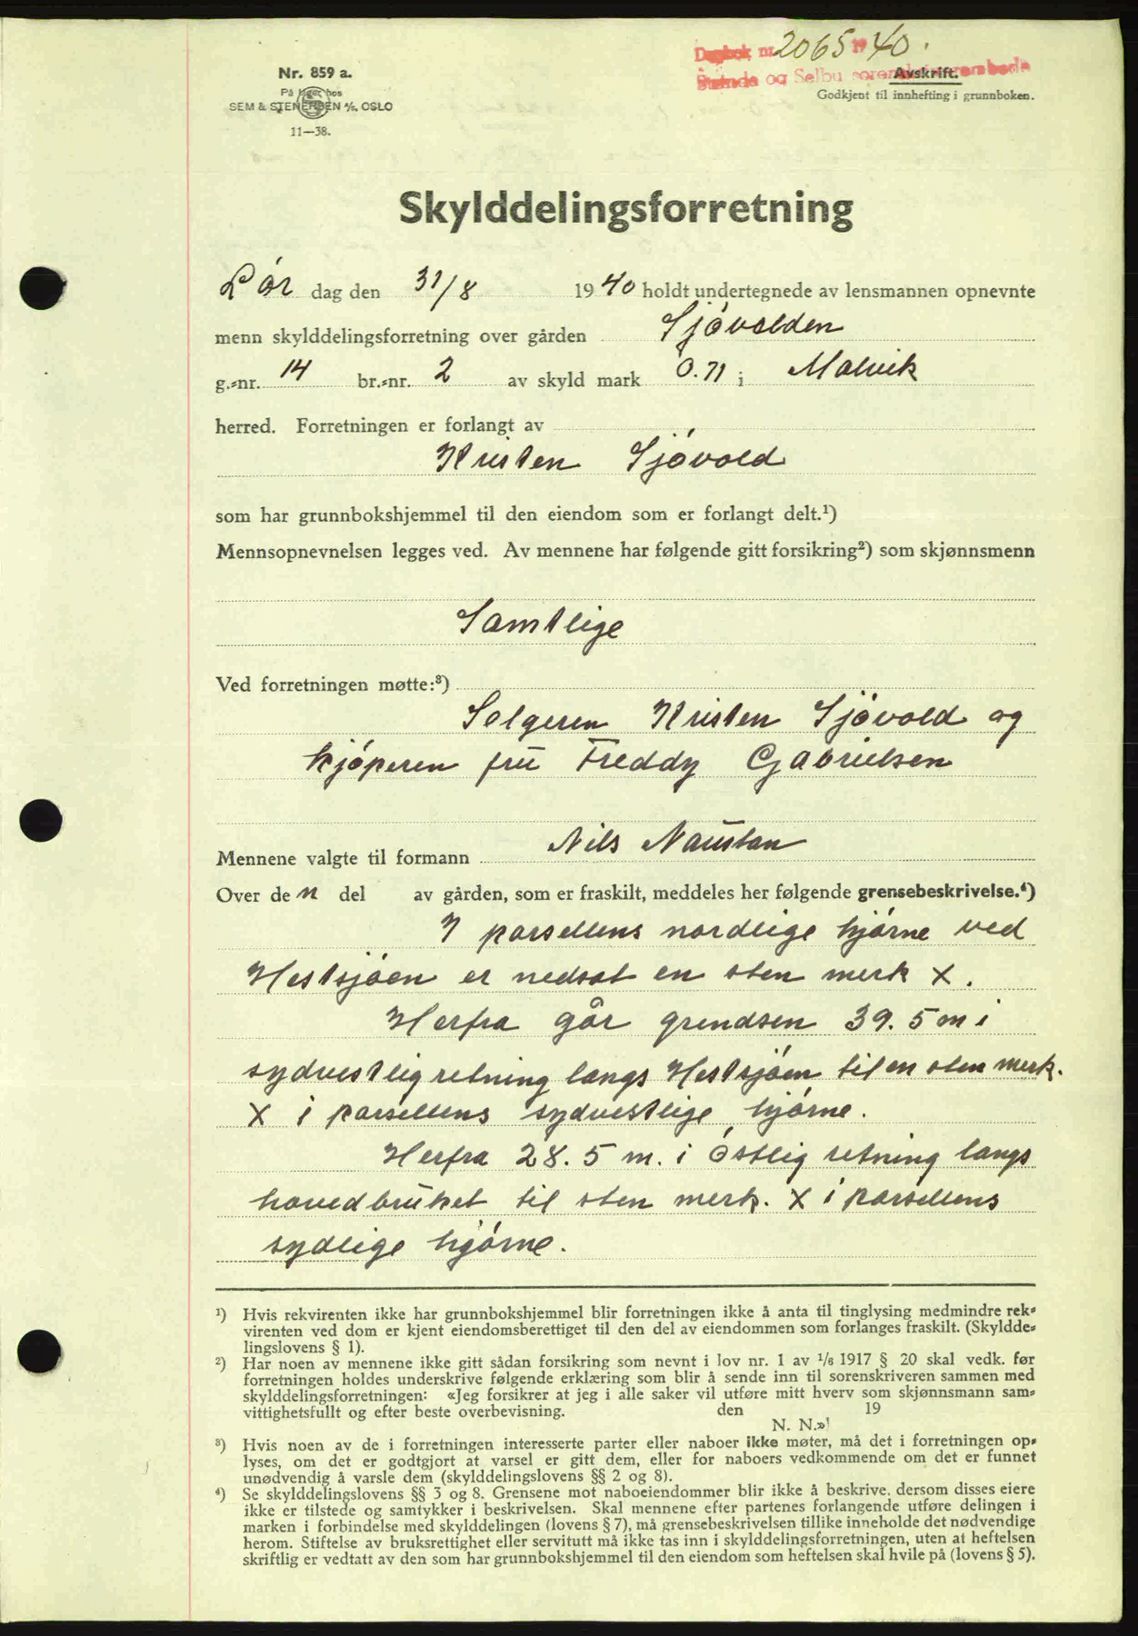 Dagbok nr. 2065 1940.
Strinda og Selbu sorenskriverembede
Nr. 859 a.
På lager hos
SEM & STENERSEN A/S. OSLO
11—38.
Avskrift.
Godkjent til innhefting i grunnboken.
Skylddelingsforretning
Lör dag den 31/8 1940 holdt undertegnede av lensmannen opnevnte
menn skylddelingsforretning over gården Sjövolden
g.-nr. 14 br.-nr. 2 av skyld mark 0.71 i Malvik
herred. Forretningen er forlangt av
Kristen Sjövold
som har grunnbokshjemmel til den eiendom som er forlangt delt.¹)
Mennsopnevnelsen legges ved. Av mennene har følgende gitt forsikring²) som skjønnsmenn
Samtlige
Ved forretningen møtte:³)
Selgeren Kristen Sjövold og
kjöperen fru Freddy Gabrielsen
Mennene valgte til formann Nils Naustan
Over den del av gården, som er fraskilt, meddeles her følgende grensebeskrivelse.⁴)
I parsellens nordlige hjörne ved
Hestsjöen er nedsat en sten merk X.
Herfra går grendsen 39.5 m i
sydvestlig retning langs Hestsjöen til en sten merk.
X i parsellens sydvestlige hjörne.
Herfra 28.5 m. i östlig retning langs
hovedbruket til sten merk. X i parsellens
sydlige hjörne.
¹) Hvis rekvirenten ikke har grunnbokshjemmel blir forretningen ikke å anta til tinglysing medmindre rek-
virenten ved dom er kjent eiendomsberettiget til den del av eiendommen som forlanges fraskilt. (Skyldde-
lingslovens § 1).
²) Har noen av mennene ikke gitt sådan forsikring som nevnt i lov nr. 1 av 1/6 1917 § 20 skal vedk. før
forretningen holdes underskrive følgende erklæring som blir å sende inn til sorenskriveren sammen med
skylddelingsforretningen: «Jeg forsikrer at jeg i alle saker vil utføre mitt hverv som skjønnsmann sam-
vittighetsfullt og efter beste overbevisning. den 19
N. N.»!
³) Hvis noen av de i forretningen interesserte parter eller naboer ikke møter, må det i forretningen op-
lyses, om det er godtgjort at varsel er gitt dem, eller for naboers vedkommende om det er funnet
unødvendig å varsle dem (skylddelingslovens §§ 2 og 8).
⁴) Se skylddelingslovens §§ 3 og 8. Grensene mot naboeiendommer blir ikke å beskrive, dersom disses eiere
ikke er tilstede og samtykker i beskrivelsen. Skal mennene efter partenes forlangende utføre delingen i
marken i forbindelse med skylddelingen (lovens § 7), må grensebeskrivelsen tillike inneholde det nødvendige
herom. Stiftelse av bruksrettighet eller servitutt må ikke tas inn i skylddelingsforretningen, uten at heftelsen
skriftlig er vedtatt av den som har grunnbokshjemmel til den eiendom som heftelsen skal hvile på (lovens § 5).